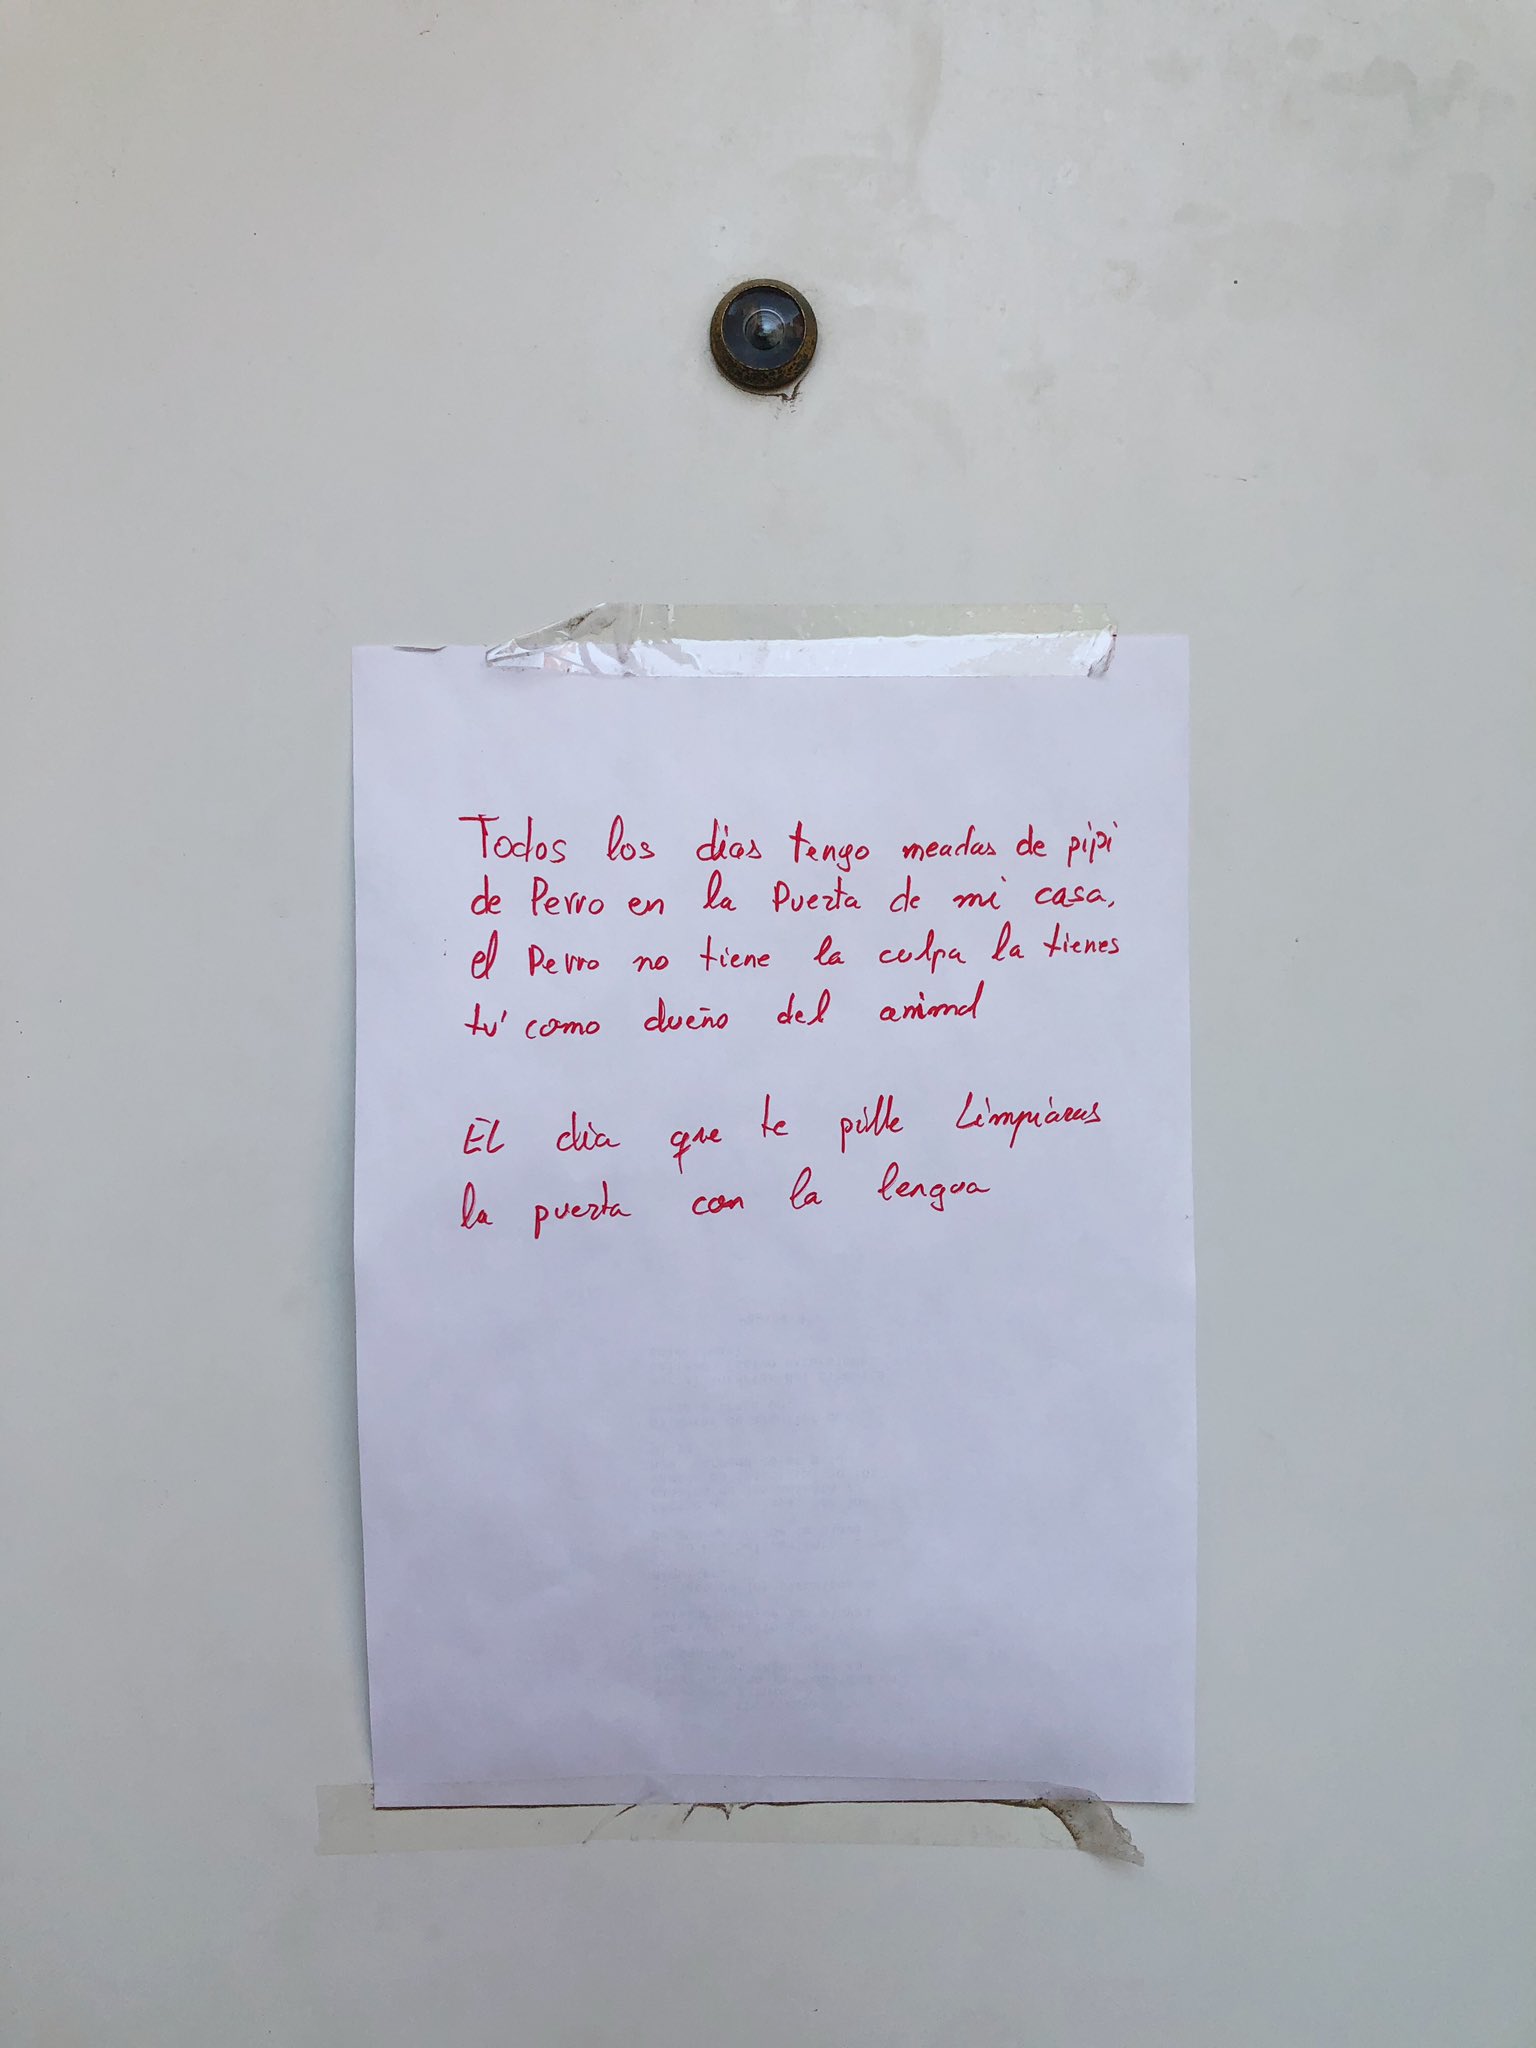 Todos los dias tengo meadas de pipi
de Perro en la Puerta de mi casa,
el Perro no tiene la culpa la tienes
tú como dueño del animal
EL dia que te pille Limpiaras
la puerta con la lengua